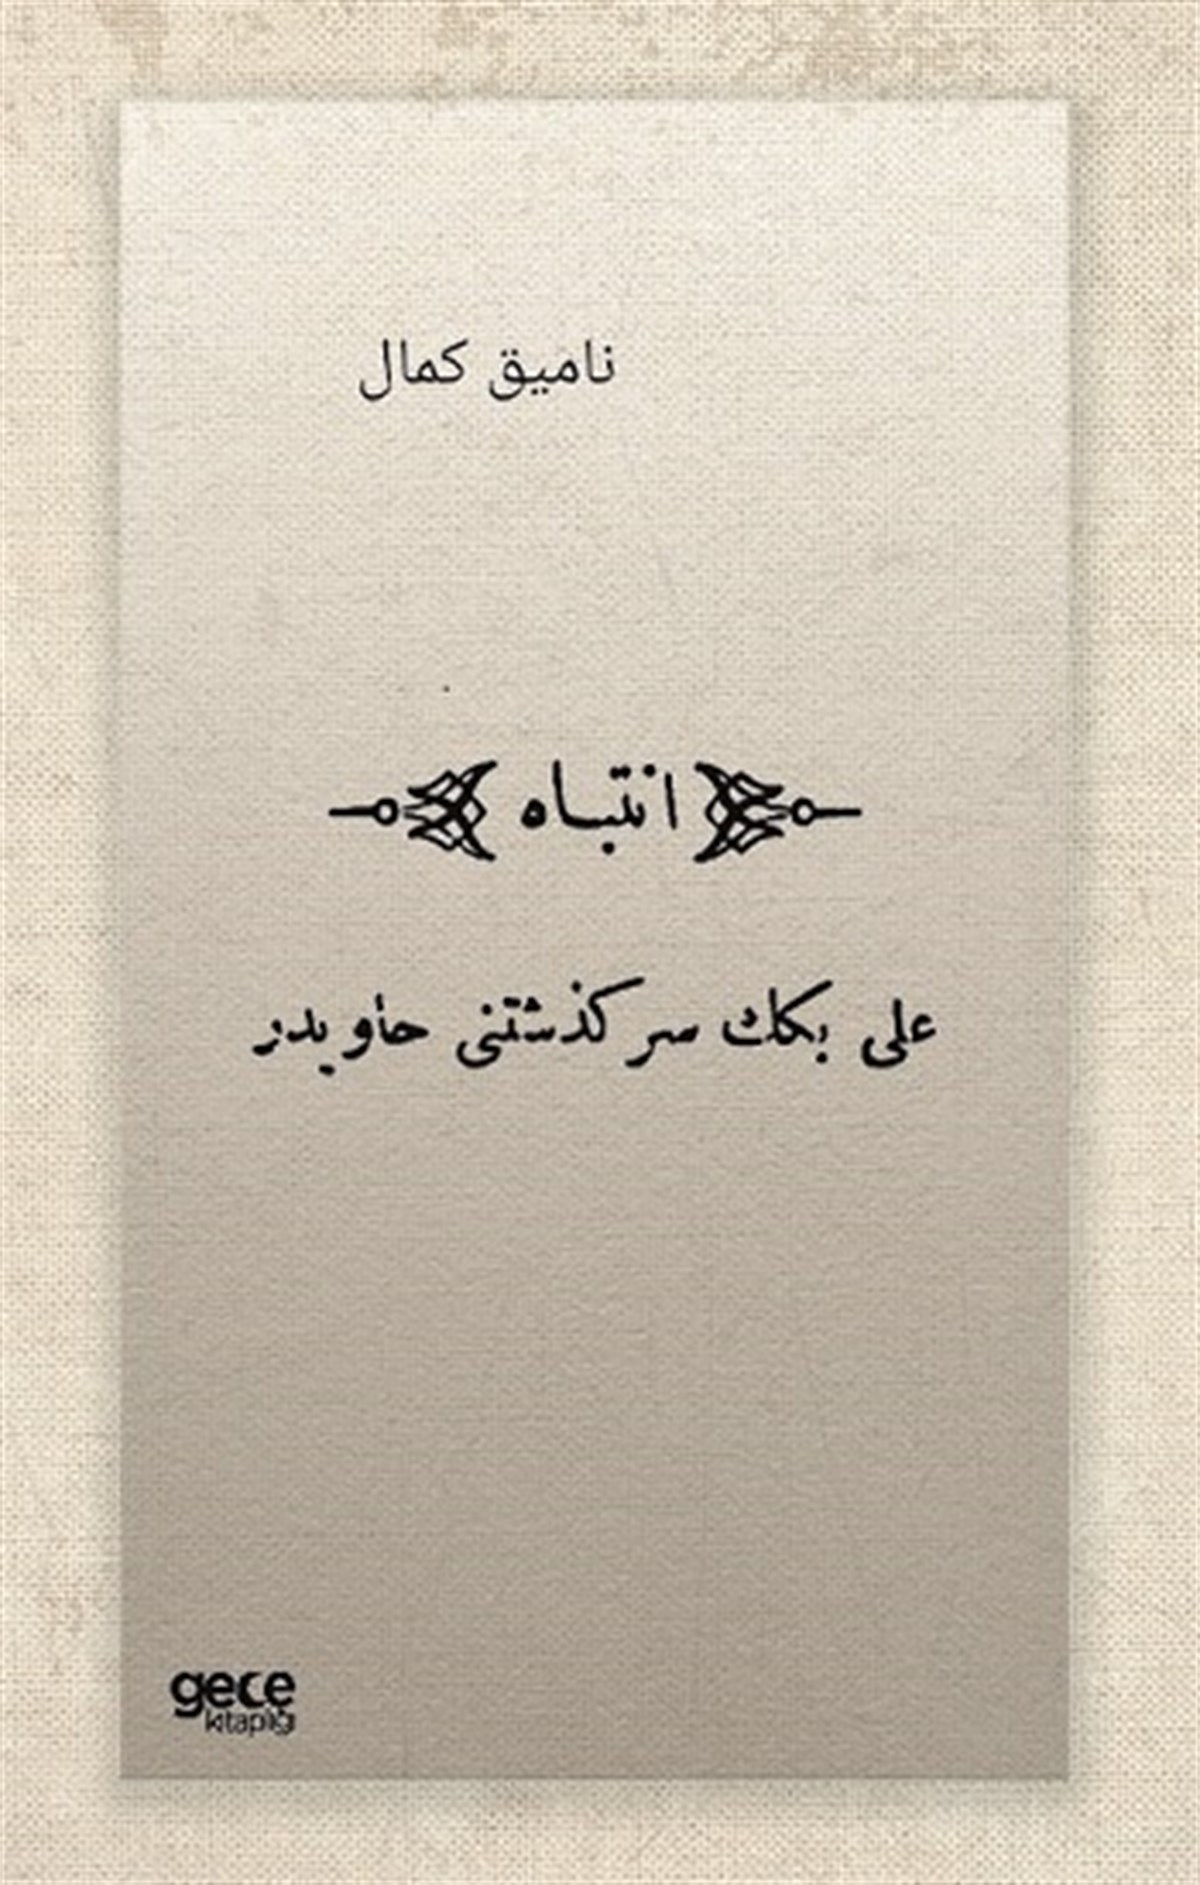 ناميق كمال
انتباه
على بكك سركذشتنى حاويدر
gece
kitaplığı